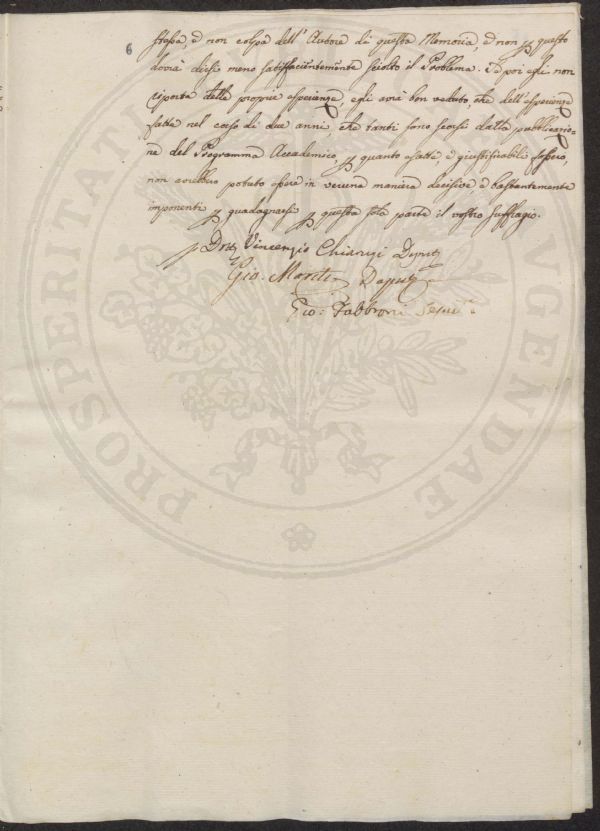 6
stessa, è non colpa dell'Autore di questa Memoria, e non p questo
dovrà dirsi meno satisfacientemente sciolto il Problema. Se poi egli non
riporta delle proprie esperienze, egli avrà ben veduto, che dell'esperienze
fatte nel corso di due anni, che tanti sono scorsi dalla pubblicazio=
ne del Programma Accademico, p quanto esatte, e giustificabili fossero,
non avrebbero potuto essere in veruna maniera decisive e bastantemente
imponenti p guadagnarsi p questa sola parte il vostro suffragio.
Dre Vincenzio Chiarugi Deput
Gio: Deputo
Gio: Fabbroni
PROSPERITATI AUGENDAE